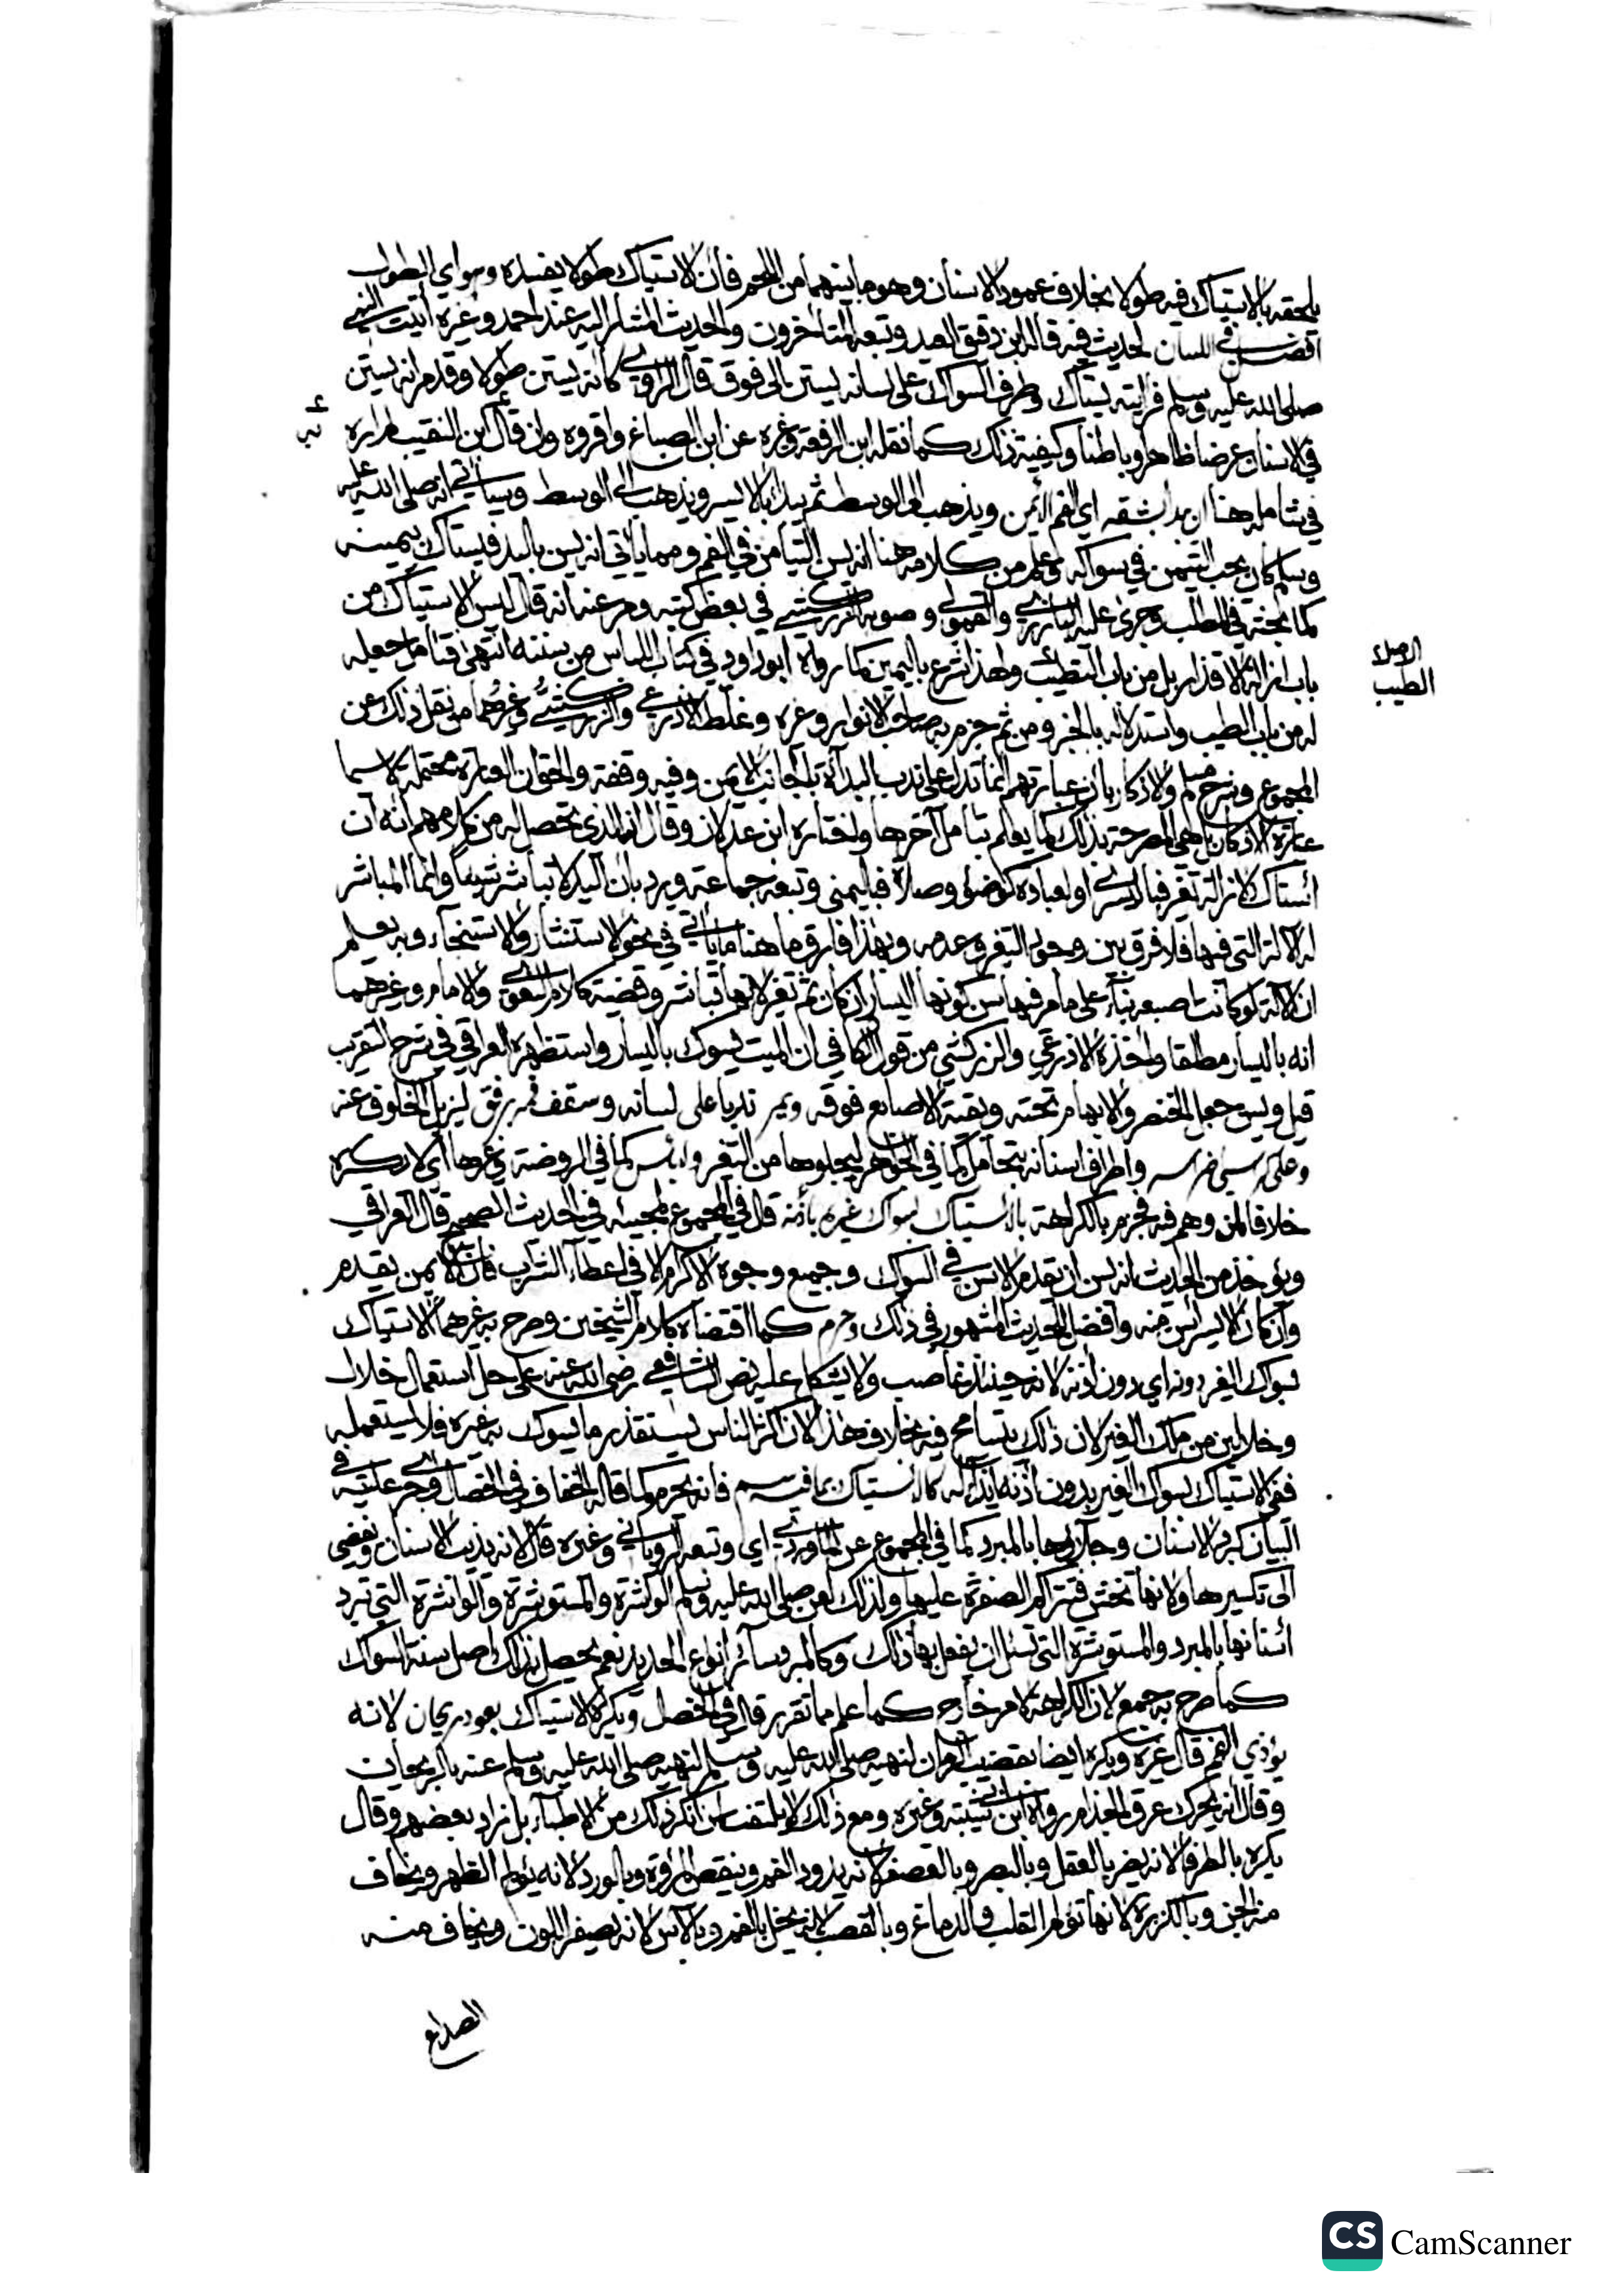 يلحقه بالاستياك فيه طولا بخلاف عمود الاسنان وهو ما بينهما من اللحم فان الاستياك طولا يفسده وهو اي الطول
افضل في اللسان لحديث فيه قاله ابن دقيق العيد وتبعه المتأخرون والحديث المشار اليه عند احمد وغيره أتيت النبي
صلى الله عليه وسلم فرأيته يستاك وطرف السواك على لسانه يستن الى فوق قال الراوي كانه يستن طولا وقدم انه يستن
في الاسنان عرضا ظاهرا وباطنا وكيفية ذلك كما نقله ابن الرفعة وغيره عن ابن الصباغ واقروه وان قال ابن النقيب لم اره
في شامله هنا ان يبدأ بشقه اي الفم الأيمن ويذهب الى الوسط ثم يبدأ بالايسر ويذهب الى الوسط وسيأتي انه صلى الله عليه
وسلم كان يحب التيمن في سواكه وعلم من كلامه هنا انه يسن التيامن في الفم ومما يأتي انه يسن باليد فيستاك بيمينه
كما بحثه في المطلب وجرى عليه البارزي والقمولي وصوبه الزركشي في بعض كتبه ومر عنه انه قال ليس الاستياك من
باب ازالة الاقذار بل من باب التطيب ولهذا شرع باليمين كما رواه ابو داود في كتاب اللباس من سننه انتهى فتامل جعله
له من باب الطيب واستدلاله بالخبر ومن ثم جزم به صاحب الانوار وغيره وغلط الاذرعي والزركشي وغيرهما من نقل ذلك عن
المجموع وشرح مسلم والاذكار بأن عبارتهم انما تدل على ندب البدأة بالجانب الايمن وفيه وقفة والحق ان العبارة محتملة لا سيما
عبارة الاذكار بل هي المصرحة بذلك كما يعلم بتأمل آخرها واختاره ابن عدلان وقال انه الذي تحصل له من كلامهم انه ان
استاك لازالة تغير فباليسرى او لعبادة كوضوء وصلاة فباليمنى وتبعه جماعة ويرد بان اليد لا تباشر شيئا وانما المباشر
له الالة التي فيها فلا فرق بين وجود التغير وعدمه وبهذا فارق ما هنا ما يأتي في نحو الاستنثار والاستنجاء وبه يعلم
ان الالة لو كانت اصبعه بناء على ما مر فيها سن كونها اليسار ان كان ثم تغير لانها تباشر وقضية كلام والامام وغيرهما
انه باليسار مطلقا واخذه الاذرعي والزركشي من قول الكافي ان الميت يسوك باليسار واستظهره العراقي في شرح التقريب
قيل ويسن جعل الخنصر والابهام تحته وبقية الاصابع فوقه ويمر ندبا على لسانه وسقف فمه برفق ليزيل الخلوف عنه
وعلى كراسي اضراسه واطراف اسنانه بتحامل كما في الجواهر ليجلوها من التغير ولا بأس كما في الروضة وغيرها اي لا يكره
خلافا لمن وهم فيه فجزم بالكراهة بالاستياك بسواك غيره باذنه قال في المجموع لمجيئه في الحديث الصحيح قال العراقي
ويؤخذ من الحديث انه يسن ان يقدم الاسن في السواك وجميع وجوه الاكرام لا في اعطاء الشرب فان الايمن يقدم
وان كان الايسر أسن منه وافضل للحديث المشهور في ذلك وحرم كما اقتضاه كلام الشيخين وصرح به غيرهما الاستياك
بسواك الغير دونه اي دون اذنه لانه حينئذ غاصب ولا يشكل عليه نص الشافعي رضي الله عنه على حل استعمال خلال
وخلالين من ملك الغير لان ذلك يتسامح فيه بخلاف هذا لان اكثر الناس يستقذر ما يسوك به غيره فلا يستعمله
ففي الاستياك بسواك الغير بدون اذنه ايذاء له كالاستياك بما فيه سم فانه يحرم كما قاله الخفاف في الخصال وجرى عليه في
البيان كبرد الاسنان وجلائها بالمبرد كما في المجموع عن الماوردي اي وتبعه الروياني وغيره قال لانه يذيب الاسنان ويفضي
الى تكسيرها ولانها تخشن فتتراكم الصفرة عليها ولذلك لعن صلى الله عليه وسلم الواشرة والمستوشرة والواشرة التي تبرد
أسنانها بالمبرد والمستوشرة التي تسئل ان يفعل بها ذلك وكالمبرد سائر انواع الحديد نعم يحصل بذلك اصل سنة السواك
كما صرح به جمع لان الكراهة لامر خارج كما علم مما تقرر قال في الخصال ويكره الاستياك بعود ريحان لانه
يؤذي الفم قال غيره ويكره ايضا بقضيب الرمان لنهيه صلى الله عليه وسلم لنهيه صلى الله عليه وسلم عنه بالريحان
وقال انه يحرك عرق الجذام رواه ابن شيبة وغيره ومع ذلك لا يلتفت لمن انكر ذلك من الاطباء بل زاد بعضهم وقال
يكره بالطرفا لانه يضر بالعقل وبالبصر وبالعصفر لانه يدود الفم وينقص المروة وبالورد لانه يؤلم الظهر ويخاف
منه الجن وبالكزبرة لانها تؤلم القلب والدماغ وبالقصب لانه يخل بالفم وبالآس لانه يصفر اللون ويخاف منه
الصداع
الطيب
CS CamScanner